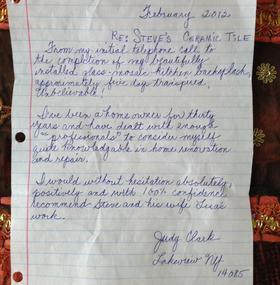 February 2012
RE: STEVE'S CERAMIC TILE
From my initial telephone call to
the completion of my beautifully
installed glass-mosaic kitchen backsplash,
approximately five days transpired,
Unbelievable!
I've been a home owner for thirty
years and have dealt with enough
"professionals" to consider myself
quite knowledgable in home renovation
and repair.
I would without hesitation absolutely,
positively and with 100% confidence
recommend Steve and his wife Lisa's
work.
Judy Clark
Lakeview NY
14085